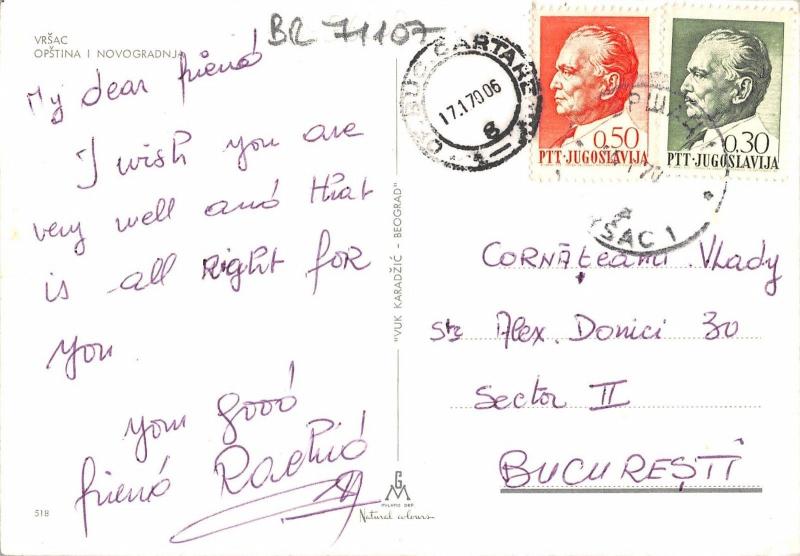 VRŠAC
OPŠTINA I NOVOGRADNJA
BR 71107
My dear friend
I wish you are
very well and that
is all right for
you
your good
friend Rachid
518
"VUK KARADŽIĆ - BEOGRAD"
GM
MILANO DEP.
Natural colours
17.1.70.06
0,50
PTT·JUGOSLAVIJA
0,30
PTT·JUGOSLAVIJA
VRŠAC 1
CORNĂțeanu Vlady
Str Alex. Donici 30
Sector II
BUCUREȘTI